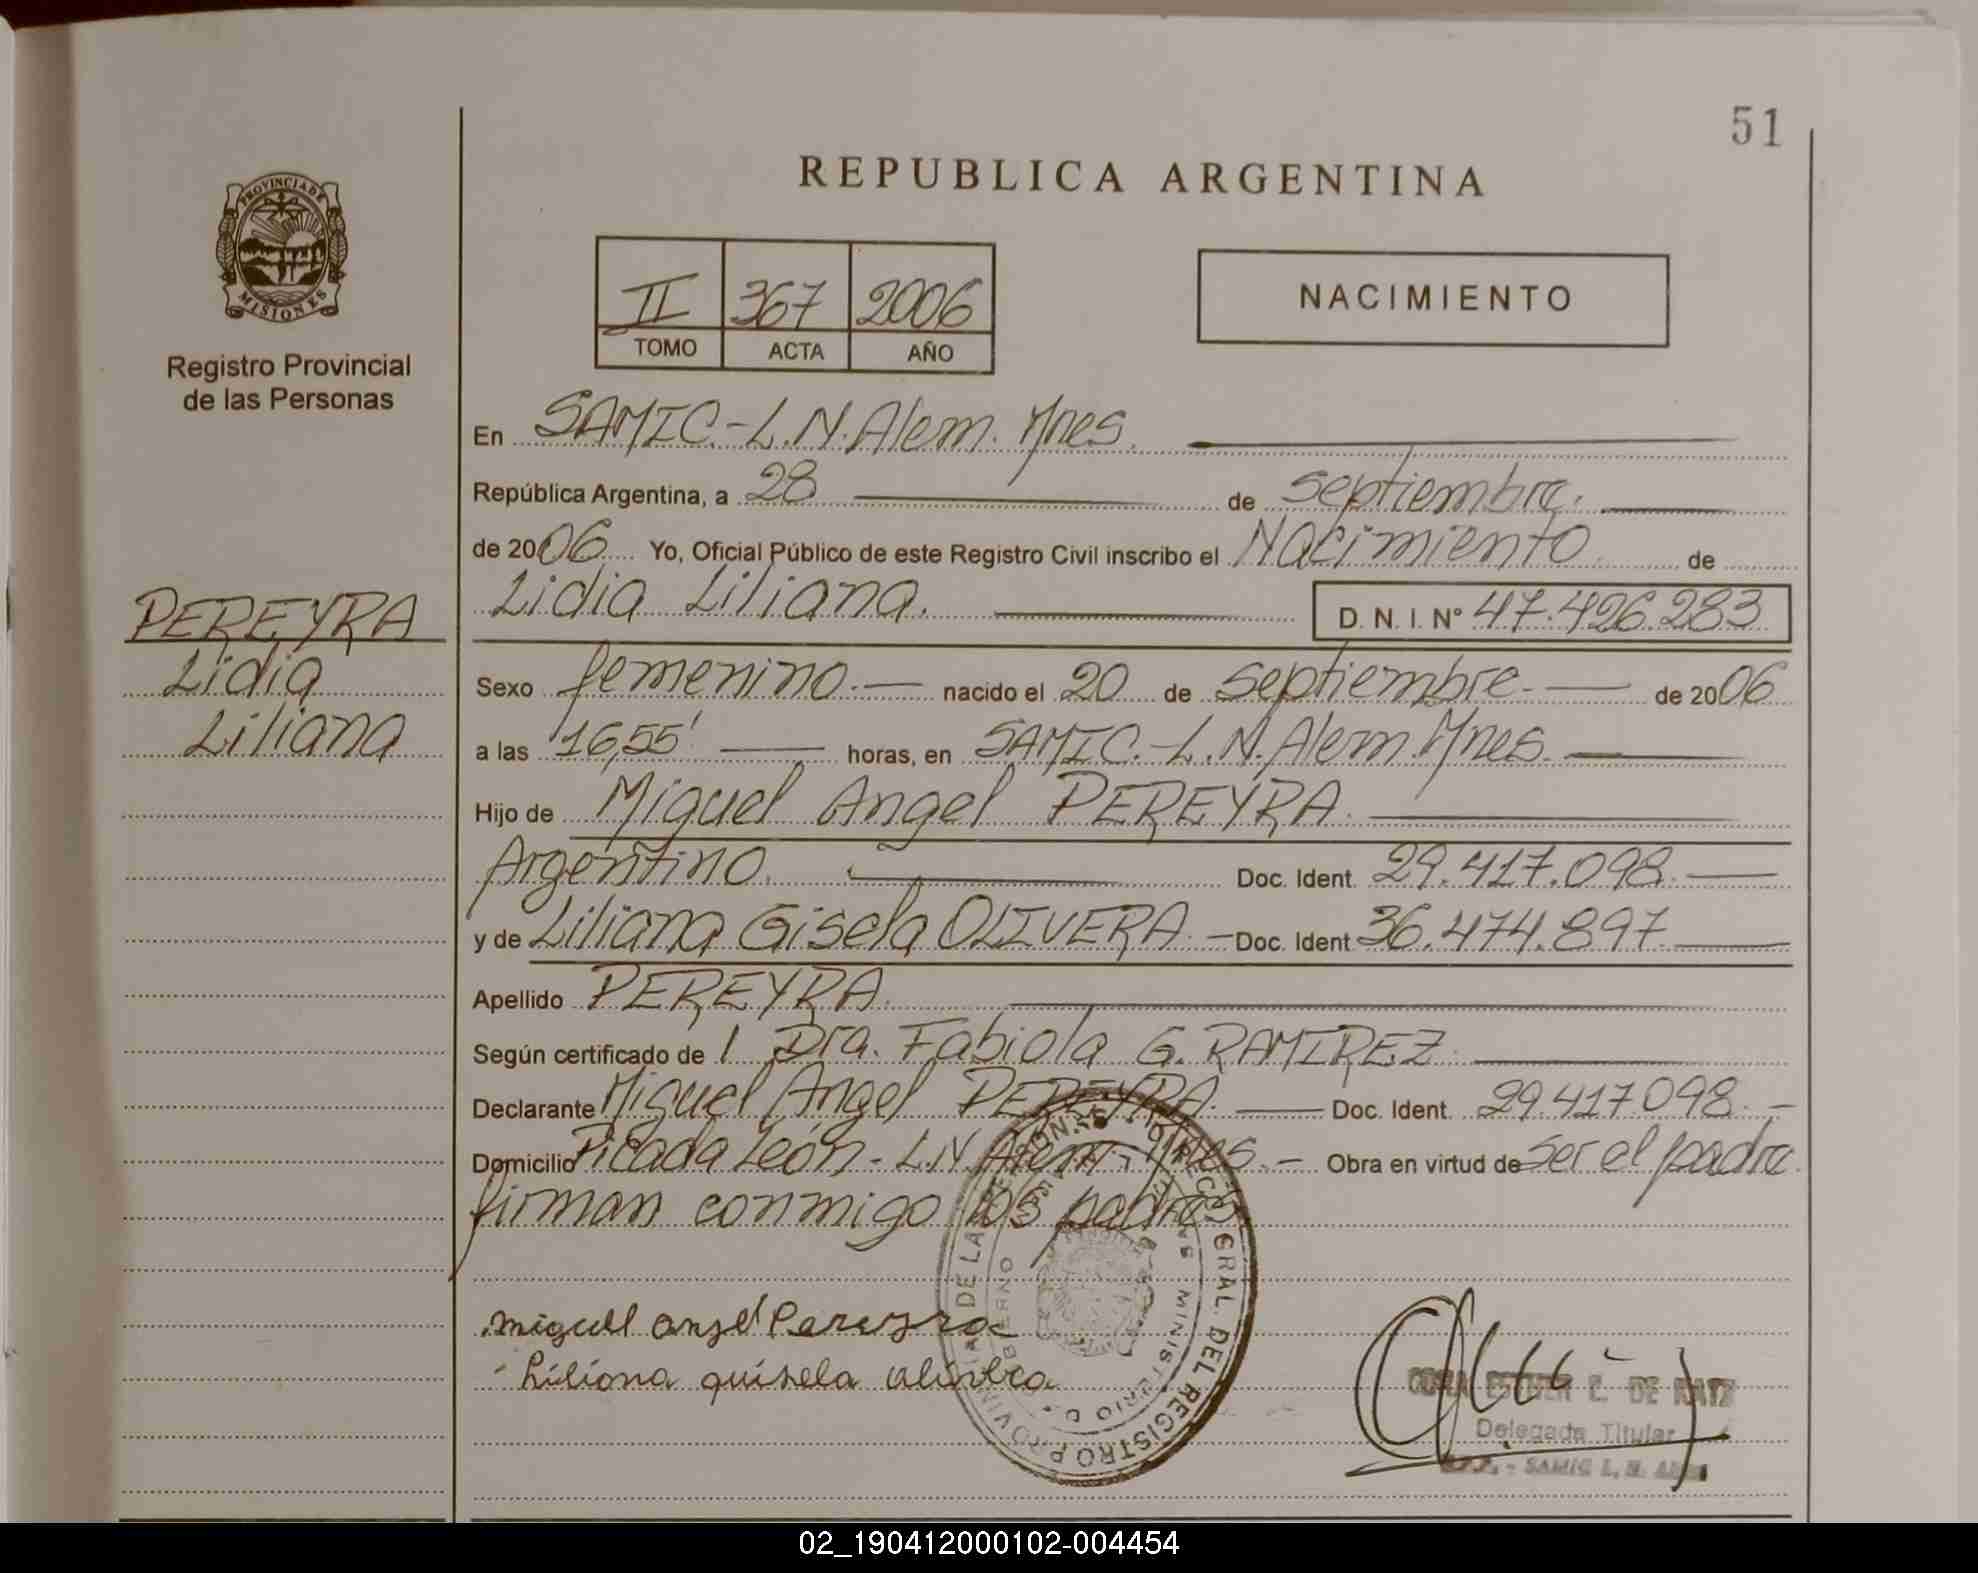 51
REPUBLICA ARGENTINA
PROVINCIA DE
MISIONES
Registro Provincial
de las Personas
II 367 2006
TOMO ACTA AÑO
NACIMIENTO
En SAMIC.-L.N.Alem. Mnes.
República Argentina, a 28 de septiembre.
de 2006 Yo, Oficial Público de este Registro Civil inscribo el Nacimiento de
Lidia Liliana. D. N. I. Nº 47.426.283
PEREYRA
Lidia
Liliana
Sexo femenino.- nacido el 20 de septiembre.- de 2006
a las 16,55' horas, en SAMIC.-L.N.Alem.Mnes.
Hijo de Miguel Angel PEREYRA.
Argentino. Doc. Ident. 29.417.098.
y de Liliana Gisela OLIVERA.- Doc. Ident 36.474.897.
Apellido PEREYRA.
Según certificado de / Dra. Fabiola G. RAMIREZ.
Declarante Miguel Angel PEREYRA. Doc. Ident. 29.417.098.-
Domicilio Picada León.- L.N.Alem.- Mnes.- Obra en virtud de ser el padre.
firman conmigo los padres
miguel angel Pereyra
Liliana quisela olivera
DIRECC. GRAL. DEL REGISTRO PROVINCIAL DE LAS PERSONAS
MINISTERIO DE GOBIERNO
MISIONES
E. DE RATZ
Delegada Titular
R.P.P. - SAMIC L. N. Alem
02_190412000102-004454